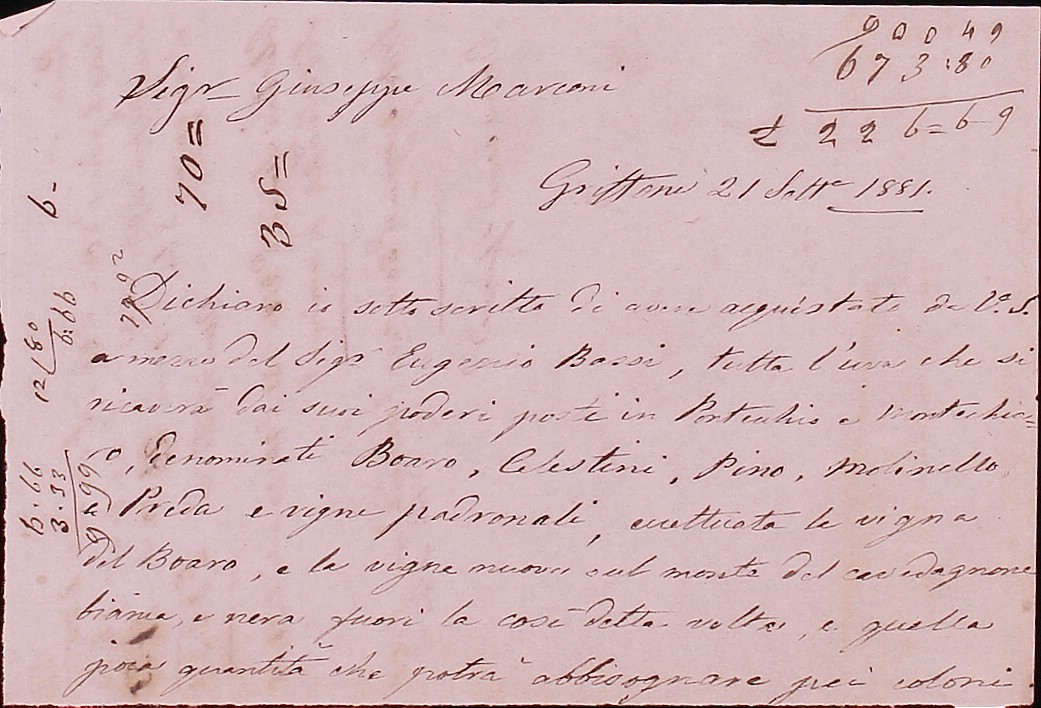 9 0 0 4 9
673:80
£ 226=69
Sigr Giuseppe Marconi
70=
35=
Griffone 21 Sett.e 1881.
6-
Dichiaro io sottoscritto di avere acquistato da V.a S.
a mezzo del Sigr Eugenio Bassi, tutta l'uva che si
ricaverà dai suoi poderi posti in Pontecchio e Montechia=
ro, denominati Boaro, Celestini, Pino, Molinello,
e Preda e vigne padronali, eccettuata la vigna
del Boaro, e la vigna nuova sul monte del cavedagnone
bianca, e nera fuori la così detta volta, e quella
poca quantità che potrà abbisognare pei coloni
12/80
6:66
6.66
3.33
9 99